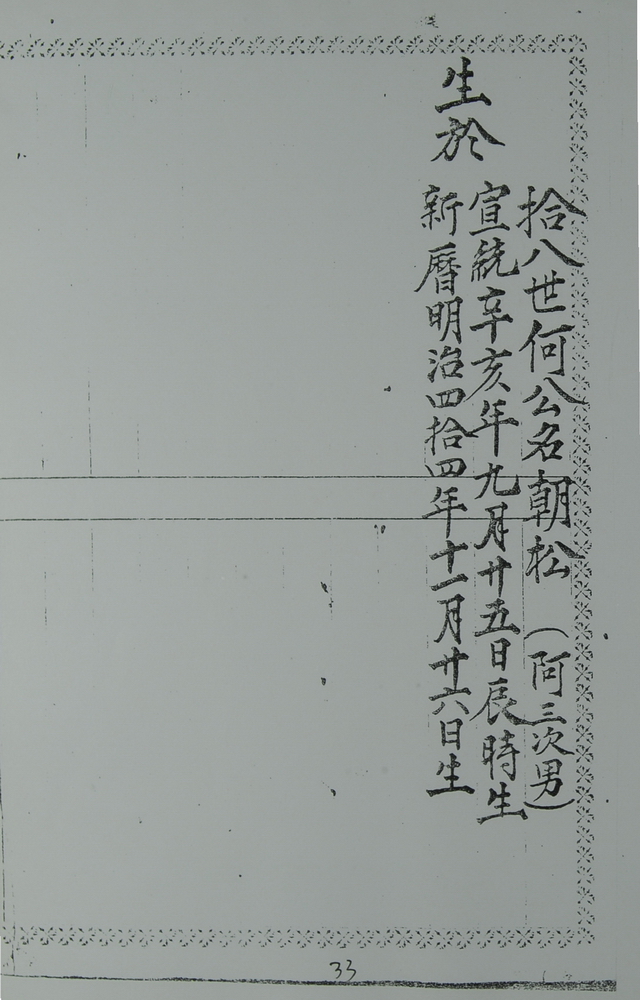 拾八世何公名朝松 (阿三次男)
生於
宣統辛亥年九月廿五日辰時生
新曆明治四拾四年十一月廿六日生
33